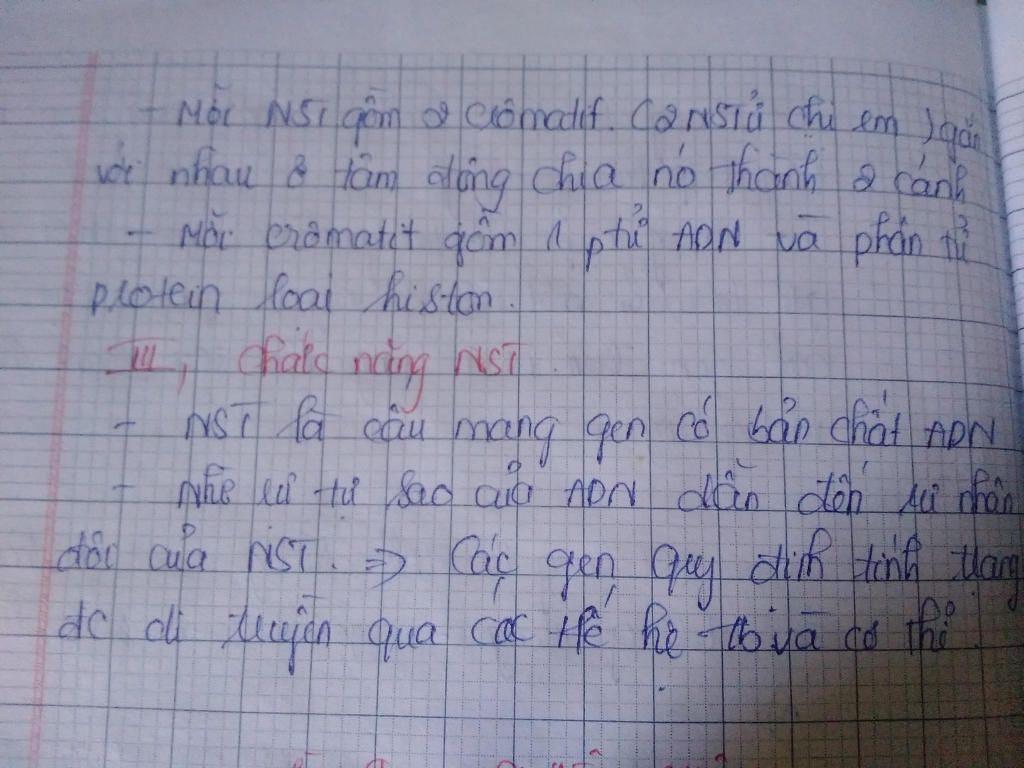 - Mỗi NST gồm 2 crômatit (2 NSTử chị em) gắn
với nhau ở tâm động chia nó thành 2 cánh
- Mỗi crômatit gồm 1 ptử ADN và phân tử
protein loại histon.
III, chức năng NST
- NST là cấu mang gen có bản chất ADN
- Nhờ sự tự sao của ADN dẫn đến sự nhân
đôi của NST. => Các gen quy định tính trạng
dc di truyền qua các thế hệ tb và cơ thể